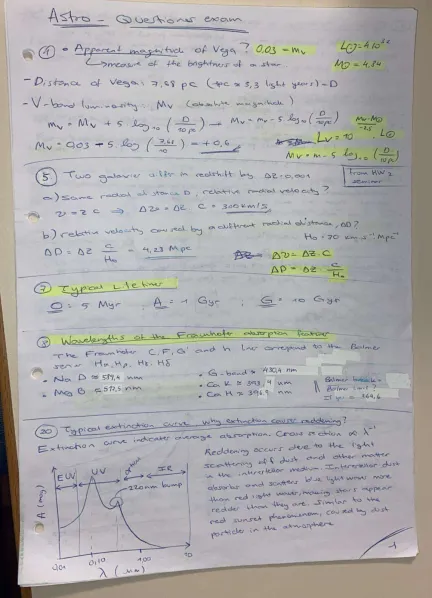 Astro - Questions exam
① • Apparent magnitude of Vega? 0.03 = mᵥ
↳ measure of the brightness of a star
M⊙ = 4,84
- Distance of Vega: 7,68 pc (1pc = 3,3 light years) = D
- V-band luminosity: Mᵥ (absolute magnitude)
mᵥ = Mᵥ + 5 log₁₀ (D/10pc) → Mᵥ = mᵥ - 5 log₁₀ (D/10pc)
Mᵥ = 0,03 - 5 log (7,68/10) = +0,6
Mᵥ = m - 5 log₁₀ (D/10pc)
⑤ Two galaxies differ in redshift by ΔZ=0,001
from HW2
seminar
a) same radial distance D, relative radial velocity?
v = z c ⇒ Δv = ΔZ · C = 300 km/s
b) relative velocity caused by a different radial distance, ΔD?
H₀ = 70 km s⁻¹ Mpc⁻¹
ΔD = ΔZ C/H₀ = 4.28 Mpc
Δv = ΔZ · C
ΔD = ΔZ · C/H₀
⑦ Typical Lifetime
O: 5 Myr, A = 1 Gyr, G = 10 Gyr
Wavelengths of the Fraunhofer absorption features
The Fraunhofer C, F, G' and h lines correspond to the Balmer
series Hα, Hβ, Hγ, Hδ
• Na D = 589,4 nm
• G-band = 430,4 nm
• Ca K = 393,4 nm
• Ca H = 396,9 nm
364,6
⑳ Typical extinction curve, why extinction causes reddening?
Extinction curve indicates average absorption. Cross section ∝ λ⁻¹
Reddening occurs due to the light
scattering off dust and other matter
in the interstellar medium. Interstellar dust
absorbs and scatters blue light waves more
than red light waves, making stars appear
redder than they are. Similar to the
red sunset phenomenon, caused by dust
particles in the atmosphere
EUV
UV
optical
IR
220nm bump
A (mag)
0,01
0,10
1,00
10
λ (μm)
1